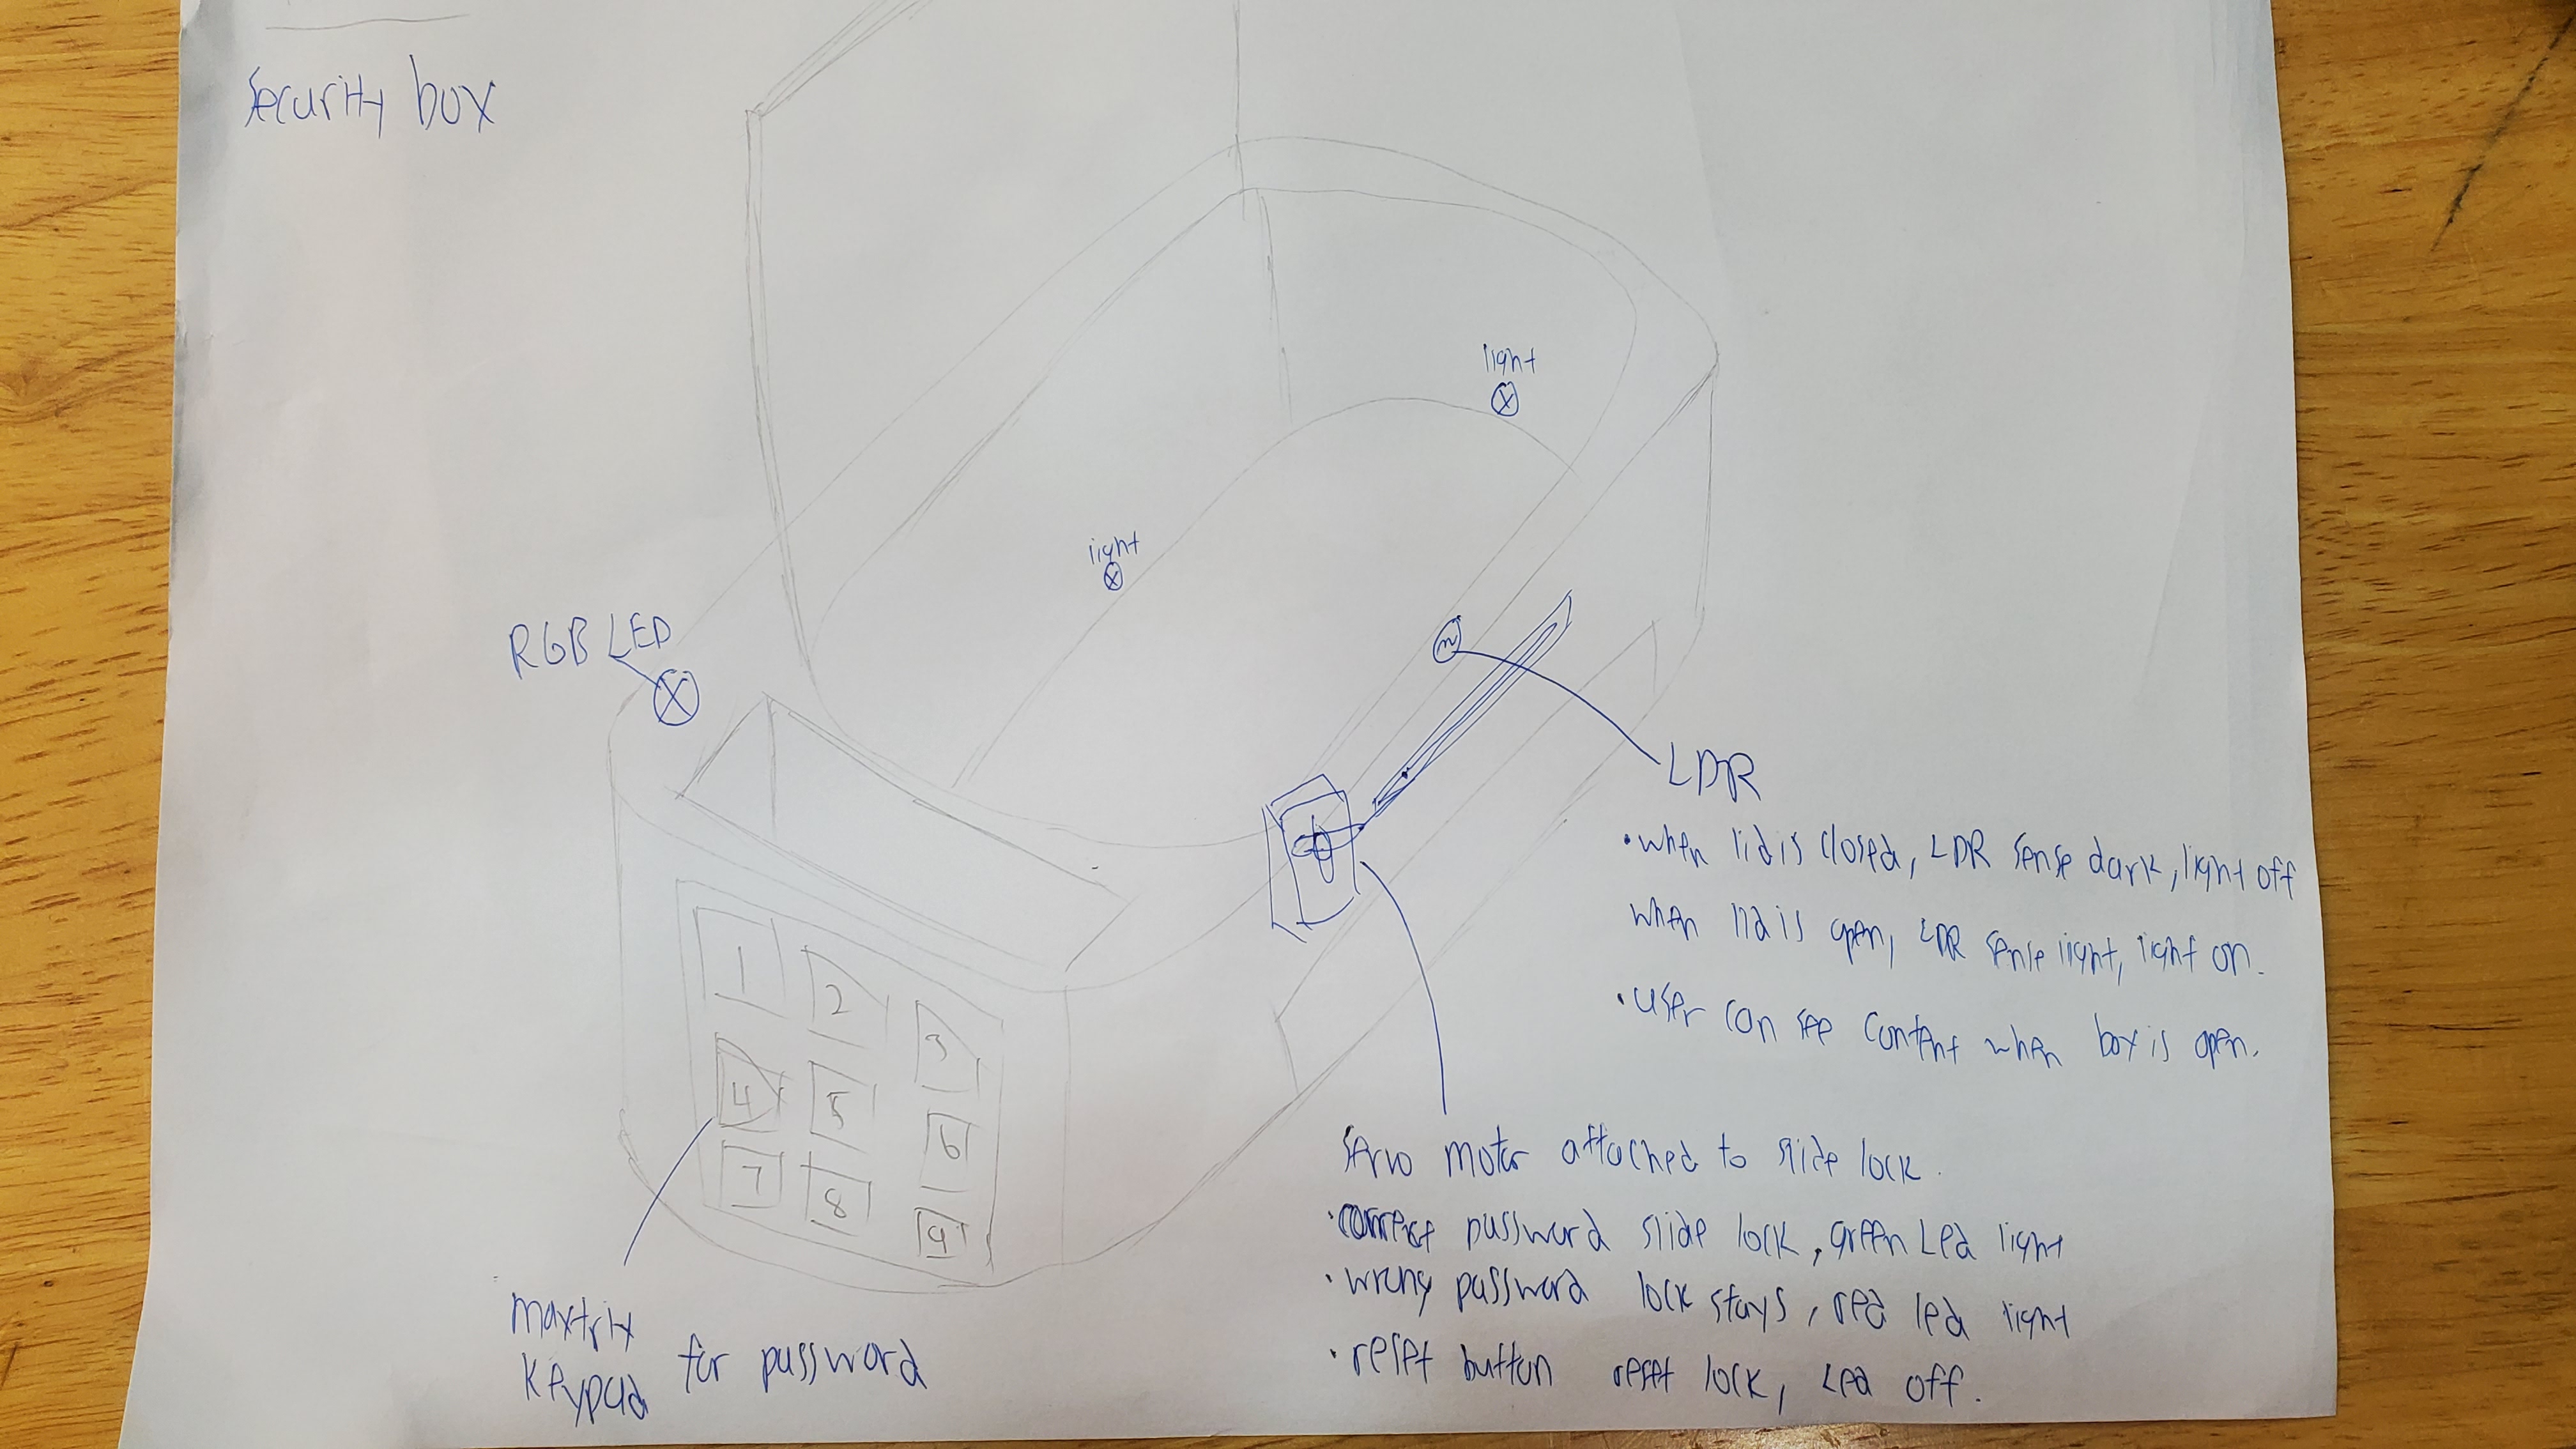 Security box
light
light
RGB LED
LDR
• when lid is closed, LDR sense dark, light off
when lid is open, LDR sense light, light on.
• user can see content when box is open.
1 2 3
4 5 6
7 8 9
Servo motor attached to slide lock.
• correct password slide lock, green Led light
• wrong password lock stays, red led light
• reset button reset lock, Led off.
maxtrix
keypad for password